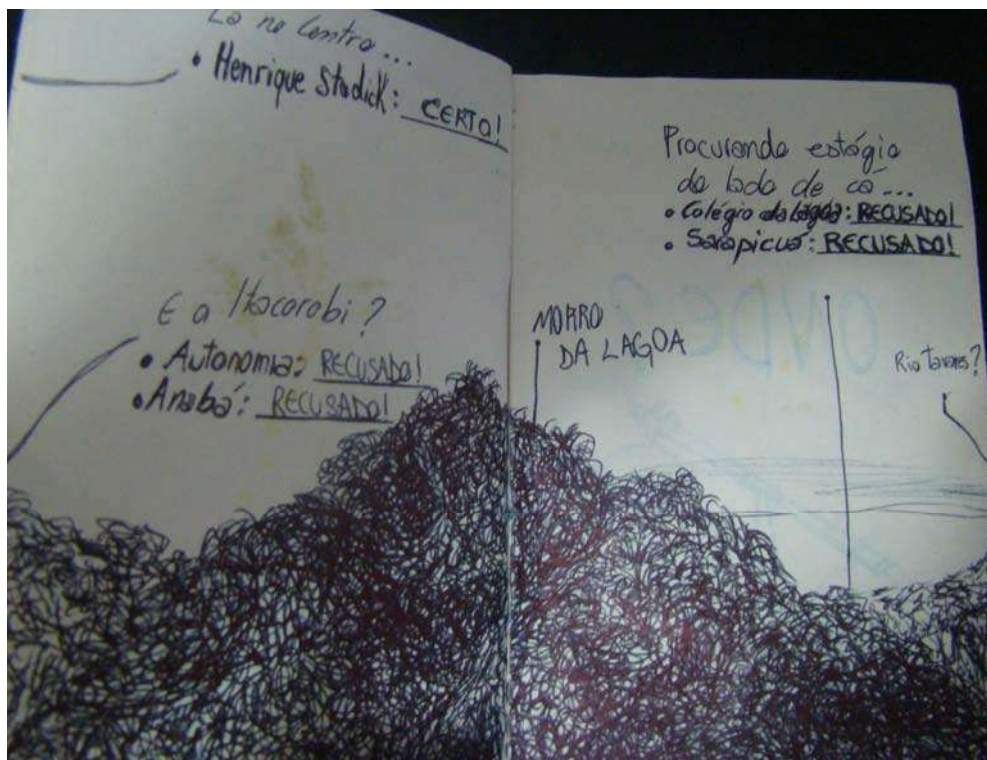 Lá no Centro...
• Henrique Stodick: CERTO!
E o Itacorobi?
• Autonomia: RECUSADO!
• Anabá: RECUSADO!
Procurando estágio
do lado de cá...
• Colégio da Lagoa: RECUSADO!
• Sarapicuá: RECUSADO!
MORRO
DA LAGOA
Rio Tavares?
ONDE?